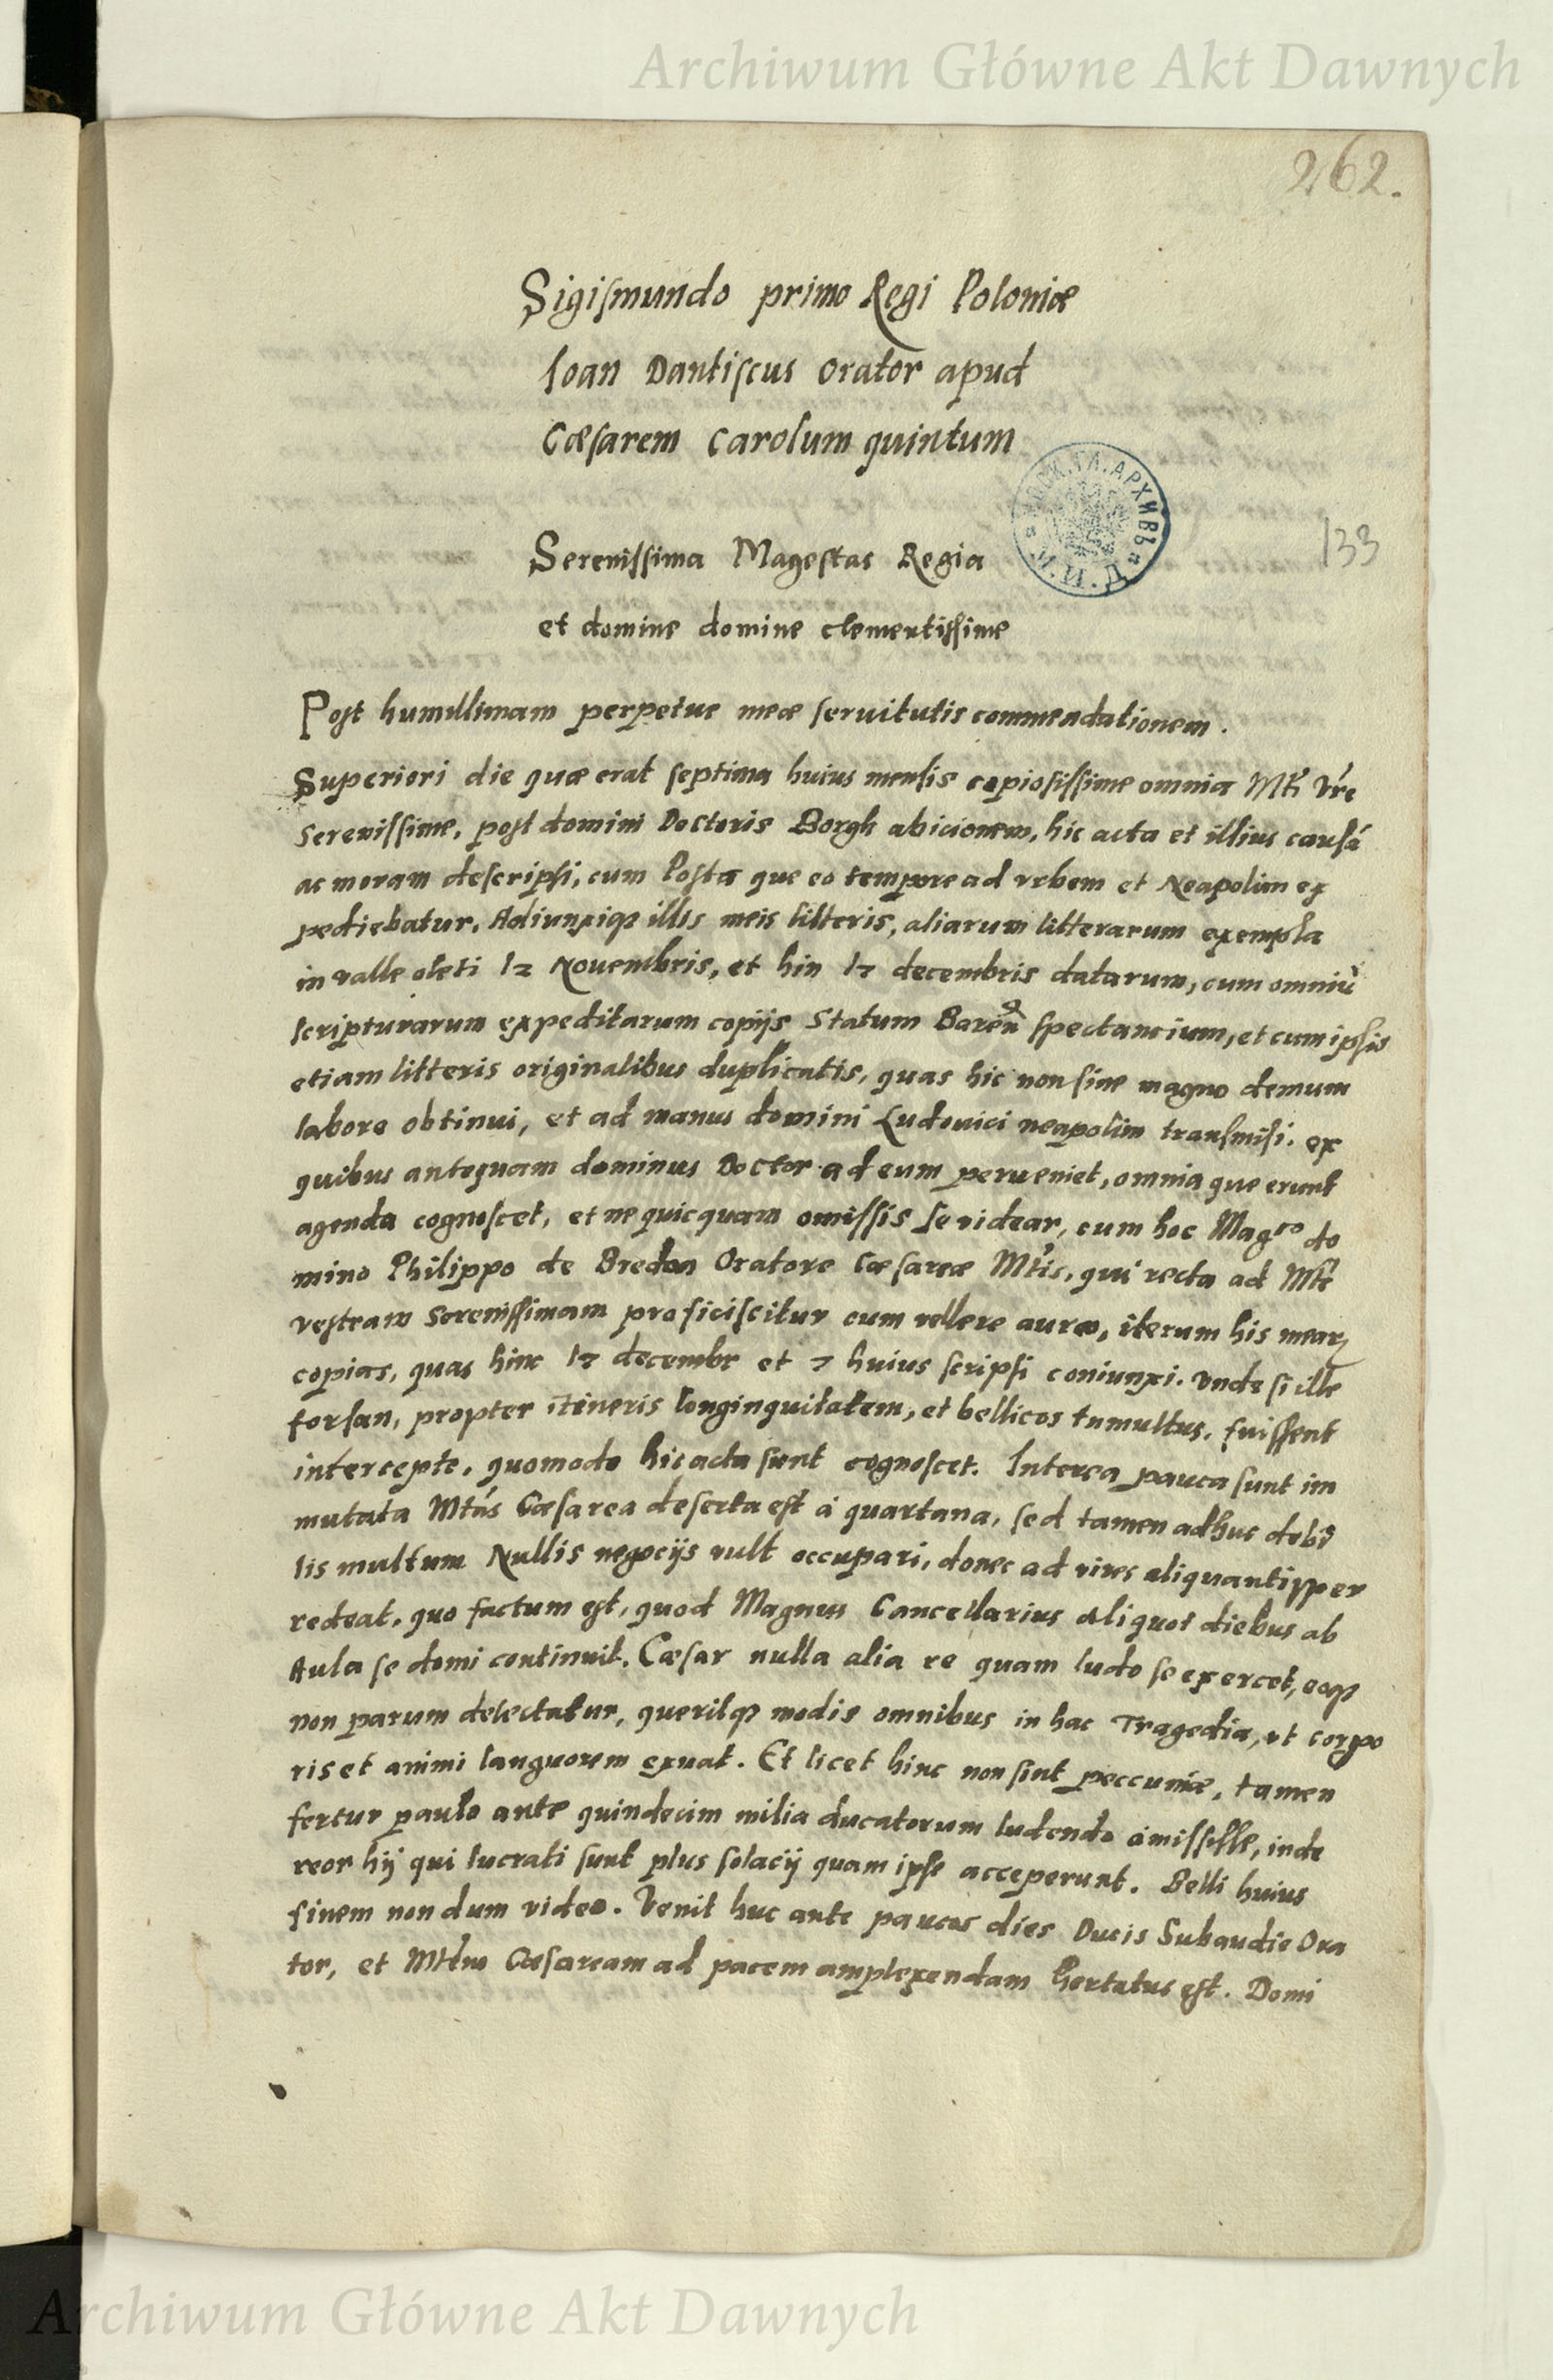 Archiwum Główne Akt Dawnych
262.
Sigismundo primo Regi Poloniæ
Ioan Dantiscus Orator apud
Cæsarem Carolum quintum
МОСК.ГЛ.АРХИВЪ М.И.Д.
133
Serenissima Magestas Regia
et domine domine clementissime
Post humillimam perpetue meæ servitutis commendationem.
Superiori die quæ erat septima huius mensis copiosissime omnia Mti Vre
Serenissime, post domini Doctoris Borgk abicionem, hic acta et illius causā
ac moram descripsi, cum Posta que eo tempore ad urbem et Neapolim ex
pediebatur. Adiunxiq illis meis litteris, aliarum litterarum exempla
in valle oleti 12 Novembris, et hin 17 decembris datarum, cum omniū
scripturarum expeditarum copijs Statum Baren spectancium, et cum ipsis
etiam litteris originalibus duplicatis, quas hic non sine magno demum
labore obtinui, et ad manus domini Ludovici neapolim transmisi. ex
quibus antequam dominus Doctor ad eum perveniet, omnia que erunt
agenda cognoscet, et ne quicquam omissis se videar, cum hoc Magco do
mino Philippo de Bredan Oratore Cæsareæ Mtis, qui recta ad Mte
vestram Serenissimam proficiscitur cum vellere aureo, iterum his mearum
copias, quas hinc 17 decembr et 7 huius scripsi coniunxi. Unde si ille
forsan, propter itineris longinquitatem, et bellicos tumultus, fuissent
intercepte, quomodo hic acta sunt cognoscet. Interea pauca sunt im
mutata Mtas Cæsarea deserta est à quartana, sed tamen adhuc debi
lis multum Nullis negocijs vult occupari, donec ad vires aliquantisper
redeat, quo factum est, quod Magnus Cancellarius aliquot diebus ab
Aula se domi continuit. Cæsar nulla alia re quam ludo se exercet, eoq
non parum delectatur, queritq modis omnibus in hac Tragedia, ut corpo
ris et animi languorem exuat. Et licet hinc non sint peccuniæ, tamen
fertur paulo ante quindecim milia ducatorum ludendo amisisse, inde
reor hij qui lucrati sunt plus solacij quam ipse acceperunt. Belli huius
finem non dum video. Venit huc ante paucos dies Ducis Subaudie Ora
tor, et Mtem Cæsaream ad pacem amplexendam hortatus est. Domi
Archiwum Główne Akt Dawnych